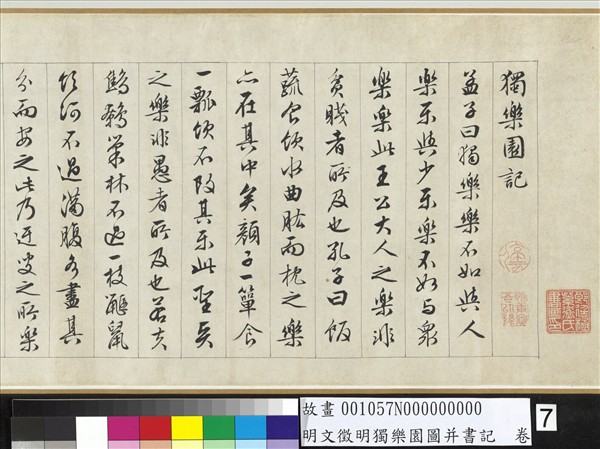 獨樂園記
孟子曰獨樂樂不如與人
樂樂與少樂樂不如與衆
樂樂此王公大人之樂非
貧賤者所及也孔子曰飯
蔬食飲水曲肱而枕之樂
亦在其中矣顏子一簞食
一瓢飲不改其樂此聖賢
之樂非愚者所及也若夫
鷦鷯巢林不過一枝鼹鼠
飲河不過滿腹各盡其
分而安之此乃迂叟之所樂
故畫 001057N000000000
明文徵明獨樂園圖并書記 卷
7